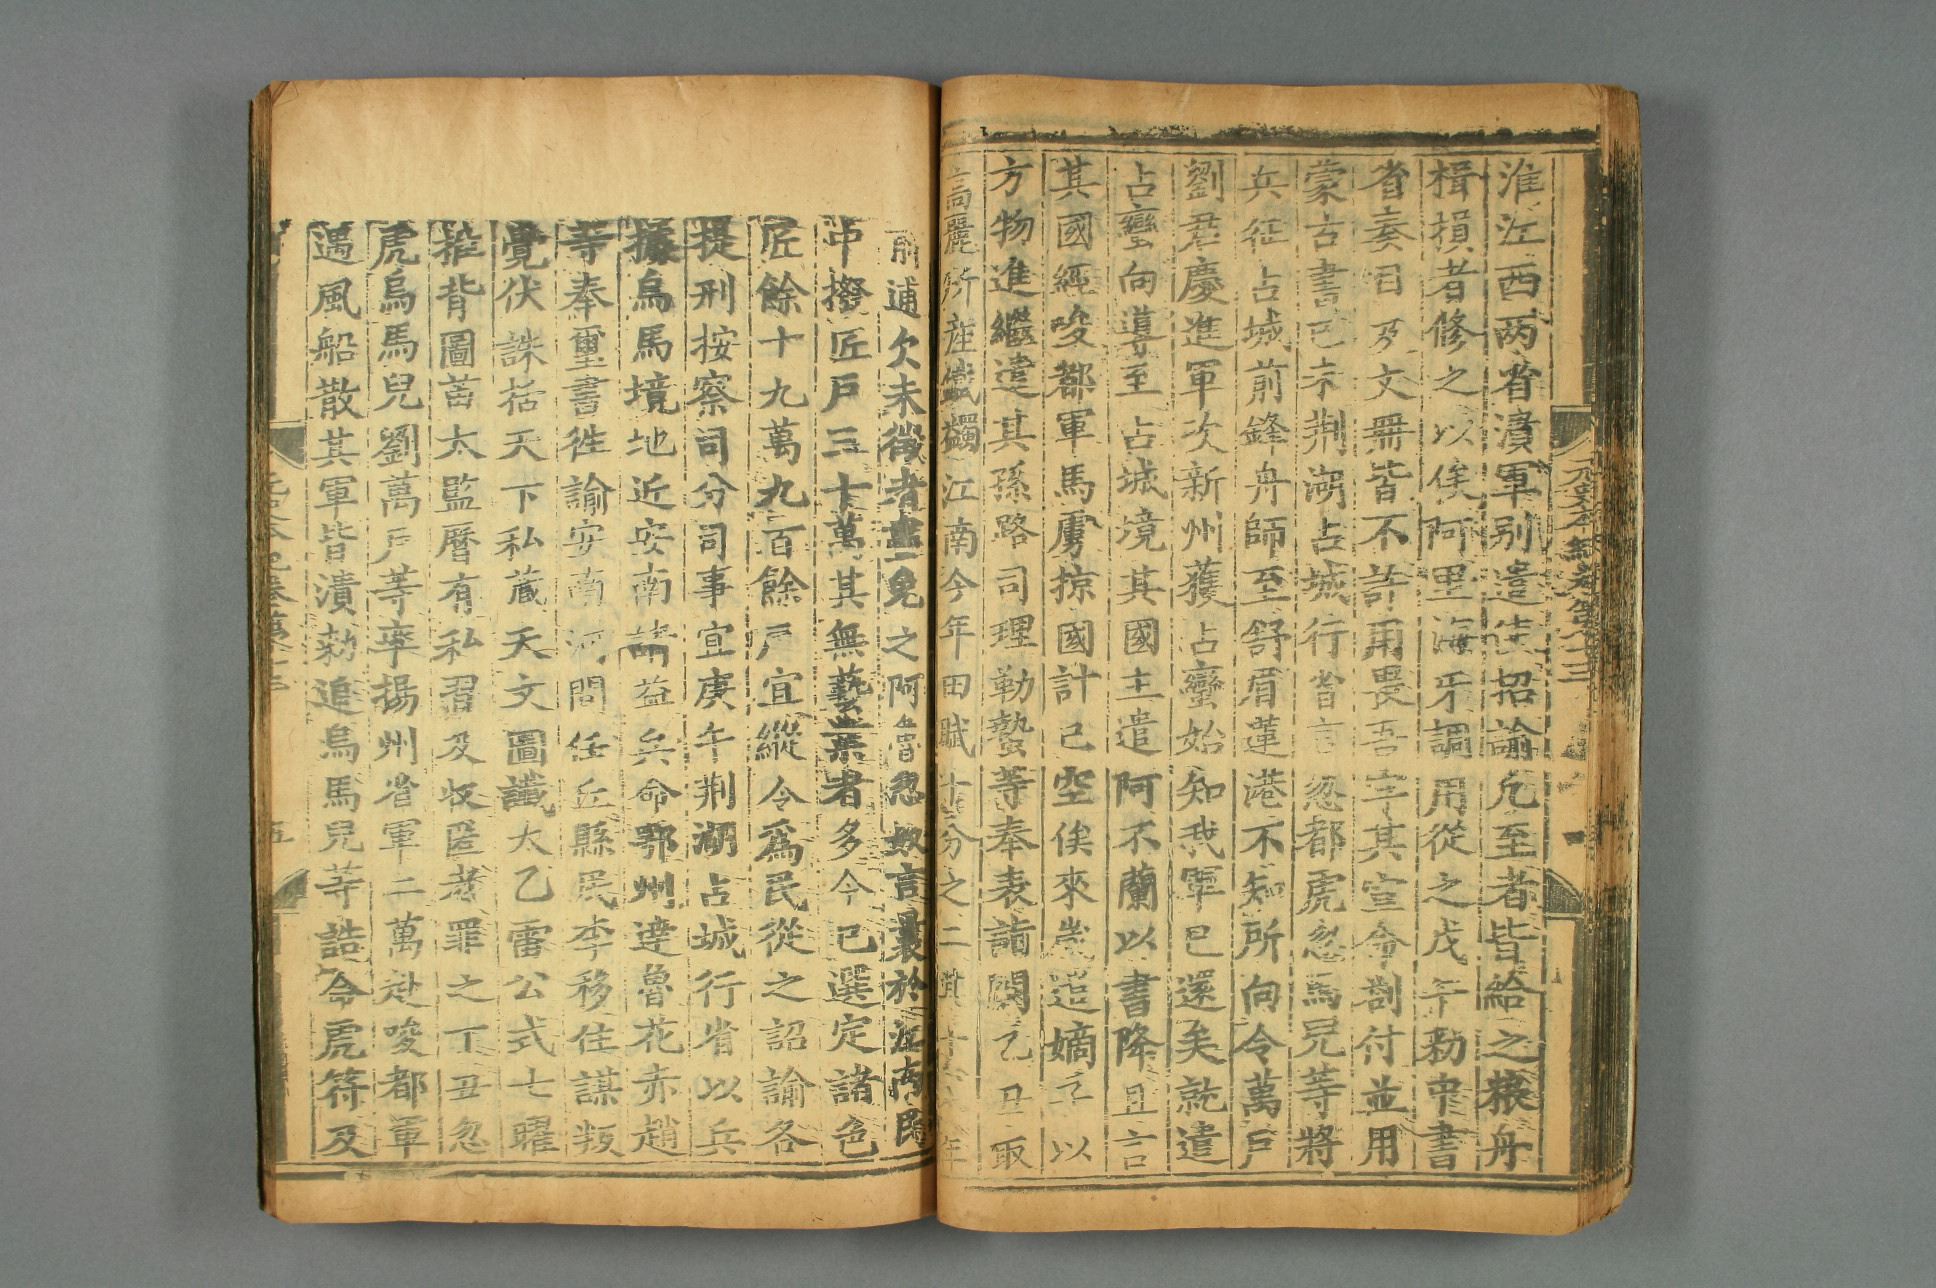 淮江西两省潰軍别遣使招諭凢至者皆給之粮舟
楫損者修之以俟阿里海牙調用從之戊午勑中書
省奏目及文冊皆不許用畏吾字其宣命劄付並用
蒙古書己未荆湖占城行省言忽都虎忽馬兒等將
兵征占城前鋒舟師至舒眉蓮港不知所向令萬戶
劉君慶進軍次新州獲占蠻始知我軍已還矣就遣
占蠻向導至占城境其國主遣阿不蘭以書降且言
其國經唆都軍馬虜掠國計已空俟來嵗遣嫡子以
方物進繼遣其孫路司理勒蟄等奉表詣闕乙丑取
高麗所産鐵蠲江南今年田賦十分之二其十八年
前逋欠未徵者盡免之阿魯忽奴言曩於江南民
中撥匠戶三十萬其無藝業者多今已選定諸色
匠餘十九萬九百餘戶宜縱令爲民從之詔諭各
提刑按察司分司事宜庚午荆湖占城行省以兵
攘烏馬境地近安南請益兵命鄂州達魯花赤趙
等奉璽書徃諭安南河間任丘縣民李移住謀叛
覺伏誅括天下私藏天文圖讖太乙雷公式七曜
推背圖苗太監曆有私習及收匿者罪之丁丑忽
虎烏馬兒劉萬戶等率揚州省軍二萬赴唆都軍
遇風船散其軍皆潰勑追烏馬兒等誥命虎符及
五